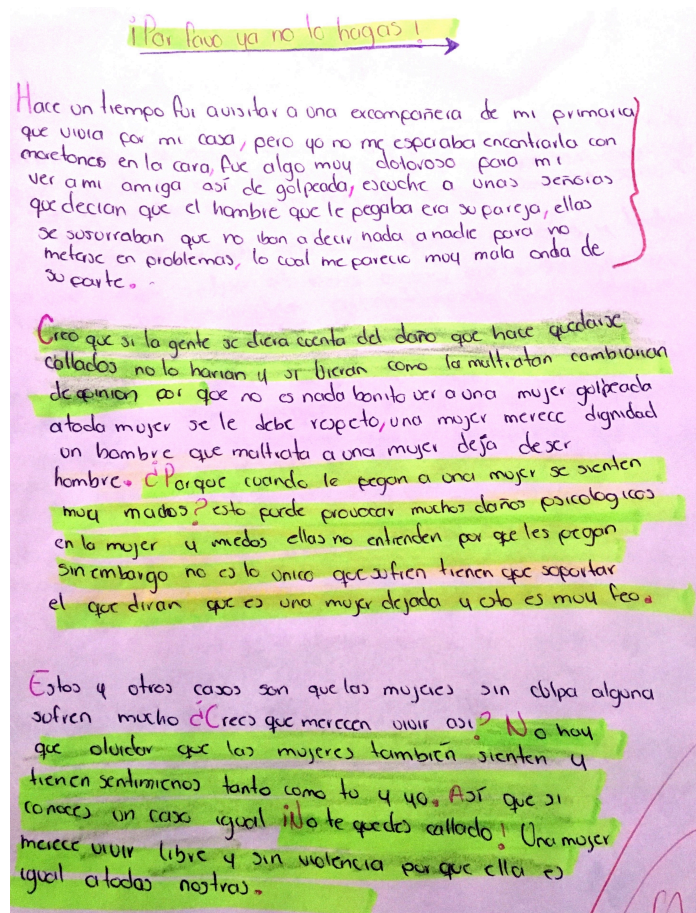 ¡Por favo ya no lo hagas!
Hace un tiempo fui avisitar a una excompañera de mi primaria
que vivia por mi casa, pero yo no me esperaba encontrarla con
moretones en la cara, fue algo muy doloroso para mi
ver ami amiga así de golpeada, escuche a unas señoras
que decian que el hombre que le pegaba era su pareja, ellas
se susurraban que no iban a decir nada anadie para no
meterse en problemas, lo cual me parecio muy mala onda de
su parte.
Creo que si la gente se diera cuenta del daño que hace quedarse
callados no lo harian y si vieran como la maltratan cambiarian
de opinion por que no es nada bonito ver a una mujer golpeada
atoda mujer se le debe respeto, una mujer merece dignidad
un hombre que maltrata a una mujer deja deser
hombre. ¿Porque cuando le pegan a una mujer se sienten
muy machos? esto puede provocar muchos daños psicologicos
en la mujer y miedos ellas no entienden por que les pegan
sin embargo no es lo unico que sufren tienen que soportar
el que diran que es una mujer dejada y esto es muy feo.
Estos y otros casos son que las mujeres sin culpa alguna
sufren mucho ¿Crees que merecen vivir asi? No hay
que olvidar que las mujeres también sienten y
tienen sentimienos tanto como tu y yo. Así que si
conoces un caso igual ¡No te quedes callado! Una mujer
merece vivir libre y sin violencia por que ella es
igual atodas nostras.